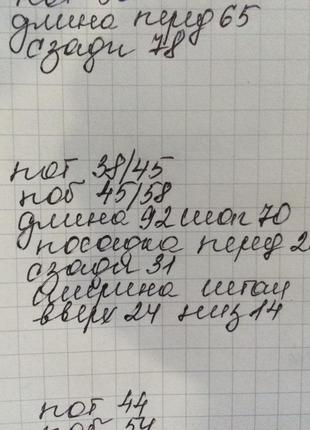 длина перед 65
сзади 78
пот 38/45
поб 45/58
длина 92 шаг 70
посадка перед 2
сзади 31
ширина штан
вверх 24 низ 14
пот 44
поб 54